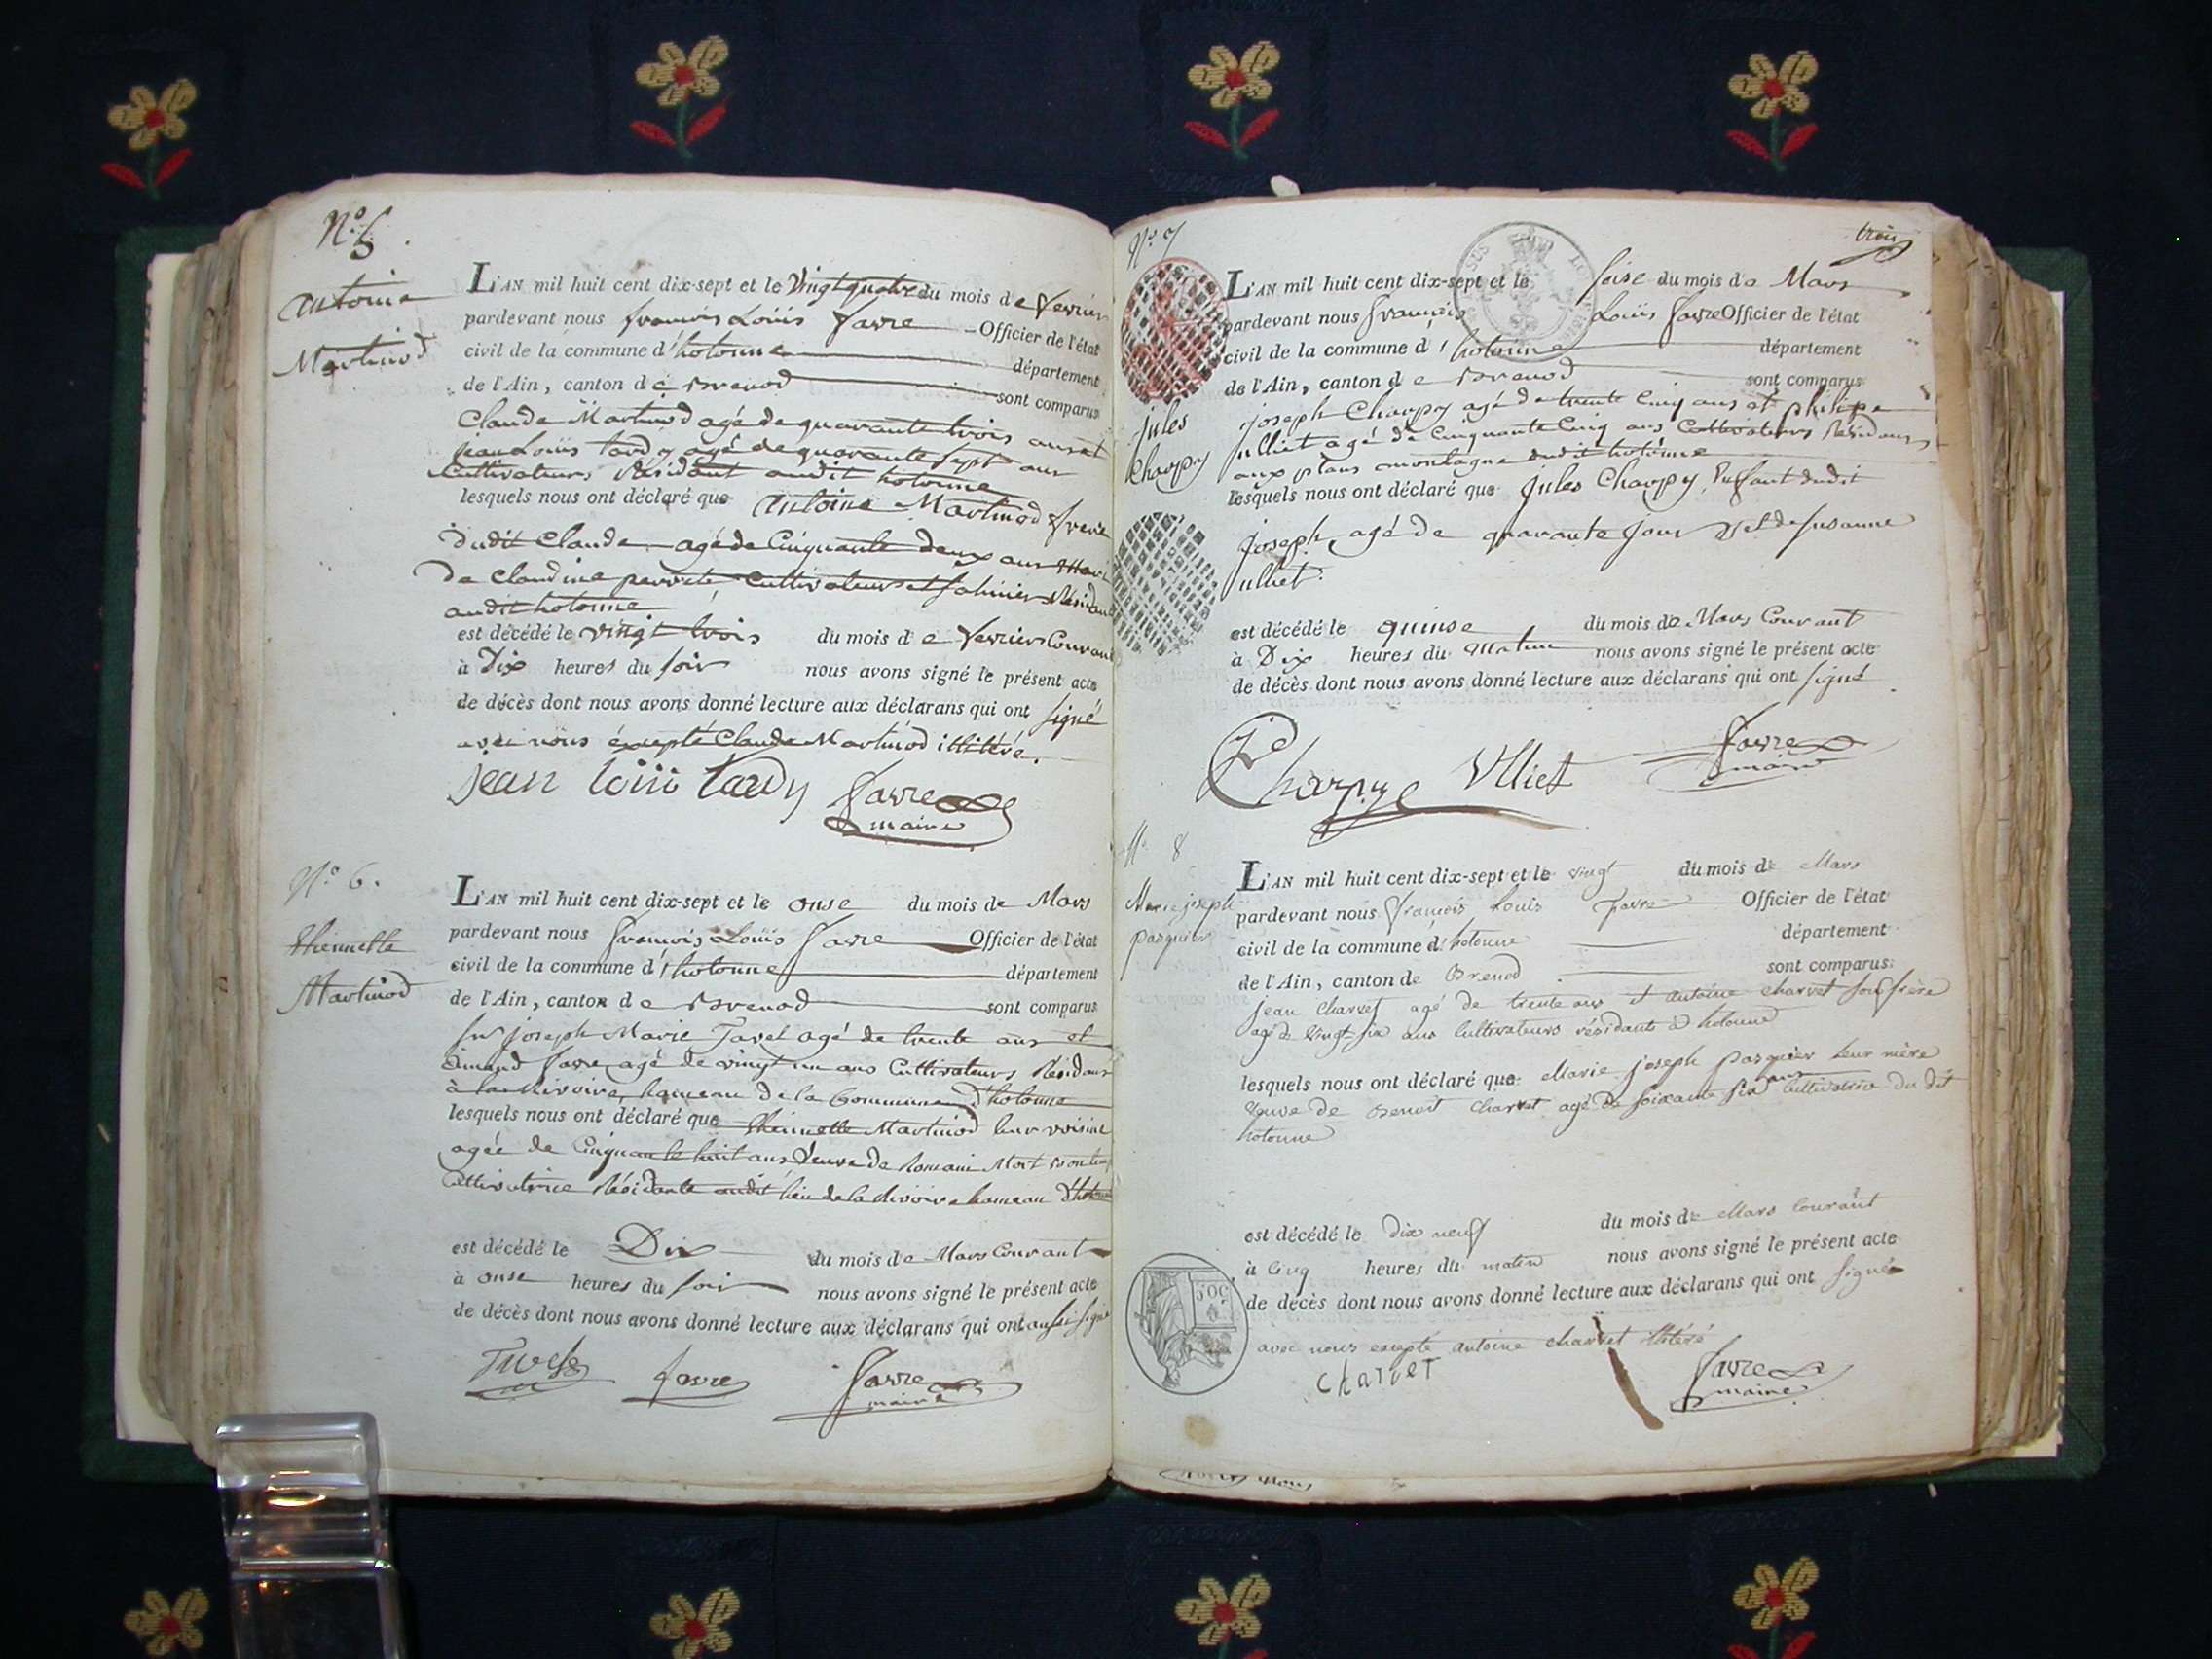 N.º 5.
Antoine
Martinod
L'AN mil huit cent dix-sept et le vingt quatre du mois de fevrier
pardevant nous françois Loüis favre Officier de l'état
civil de la commune d'hotonne département
de l'Ain, canton de Brenod sont comparus
Claude Martinod agé de quarante trois ans et
jean Loüis tardy agé de quarante sept ans
Cultivateurs Résidant audit hotonne
lesquels nous ont déclaré que Antoine Martinod frere
dudit Claude agé de Cinquante deux ans Mari
de Claudine perrete, Cultivateur et Résidant
audit hotonne
est décédé le vingt trois du mois de fevrier Courant
à Dix heures du soir nous avons signé le présent acte
de décès dont nous avons donné lecture aux déclarans qui ont signé
avec nous éxcepté Claude Martinod illitéré.
jean loiii tardy favre
maire
N.º 6.
thiennette
Martinod
L'AN mil huit cent dix-sept et le onse du mois de Mars
pardevant nous françois Loüis favre Officier de l'état
civil de la commune d'hotonne département
de l'Ain, canton de Brenod sont comparus
joseph Marie Tavel agé de trente ans et
favre agé de vingt un ans Cultivateurs Résidans
à la Rivoire, hameau de la Commune d'hotonne
lesquels nous ont déclaré que thiennette Martinod leur voisine
agée de Cinquante huit ans Veuve de Romain
Cultivatrice Résidante audit lieu de la Rivoire hameau d'hotonne
est décédé le Dix du mois de Mars Courant
à onse heures du soir nous avons signé le présent acte
de décès dont nous avons donné lecture aux déclarans qui ont aussi signé
favre favre
maire
trois
N.º 7
jules
Charpy
L'AN mil huit cent dix-sept et le seise du mois de Mars
pardevant nous françois Loüis favre Officier de l'état
civil de la commune d'hotonne département
de l'Ain, canton de Brenod sont comparus
joseph Charpy agé de trente Cinq ans et philipe
ulliet agé de Cinquante Cinq ans Cultivateurs Résidans
aux plans montagne dudit hotonne
lesquels nous ont déclaré que jules Charpy, Enfant dudit
joseph, agé de quarante jour et de susanne
ulliet.
est décédé le quinse du mois de Mars Courant
à Dix heures du Matin nous avons signé le présent acte
de décès dont nous avons donné lecture aux déclarans qui ont signé
Charpy Ulliet favre
maire
N.º 8
Marie joseph
pasquier
L'AN mil huit cent dix-sept et le vingt du mois de Mars
pardevant nous françois Louis favre Officier de l'état
civil de la commune d'hotonne département
de l'Ain, canton de Brenod sont comparus
jean Charvet agé de trente ans et Antoine Charvet son frère
agé de vingt six ans Cultivateurs résidants à hotonne
lesquels nous ont déclaré que Marie joseph pasquier leur mère
veuve de Benoit Charvet agé de soixante six ans Cultivatrice du dit
hotonne
est décédé le dix neuf du mois de Mars Courant
à Cinq heures du matin nous avons signé le présent acte
de décès dont nous avons donné lecture aux déclarans qui ont signé
avec nous excepté Antoine Charvet illitéré
50C
charvet favre
maire